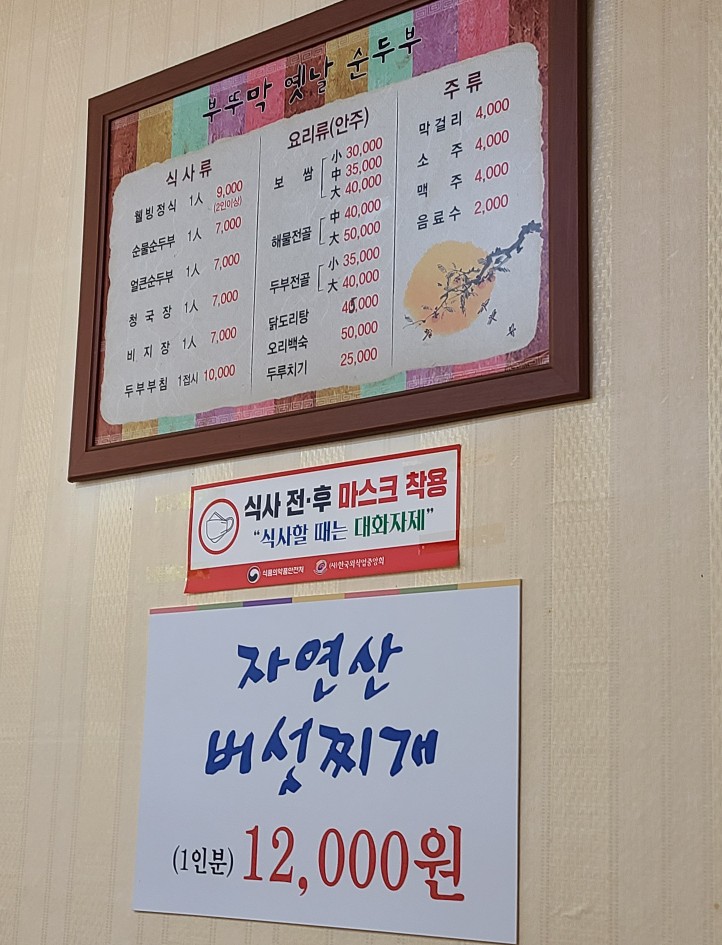 부뚜막 옛날 순두부
식사류
웰빙정식 1人 9,000
(2인이상)
순물순두부 1人 7,000
얼큰순두부 1人 7,000
청국장 1人 7,000
비지장 1人 7,000
두부부침 1접시 10,000
요리류(안주)
보쌈 小 30,000
中 35,000
大 40,000
해물전골 中 40,000
大 50,000
두부전골 小 35,000
大 40,000
닭도리탕 45,000
오리백숙 50,000
두루치기 25,000
주류
막걸리 4,000
소주 4,000
맥주 4,000
음료수 2,000
식사 전·후 마스크 착용
“식사할 때는 대화자제”
식품의약품안전처 (사)한국외식업중앙회
자연산
버섯찌개
(1인분) 12,000원